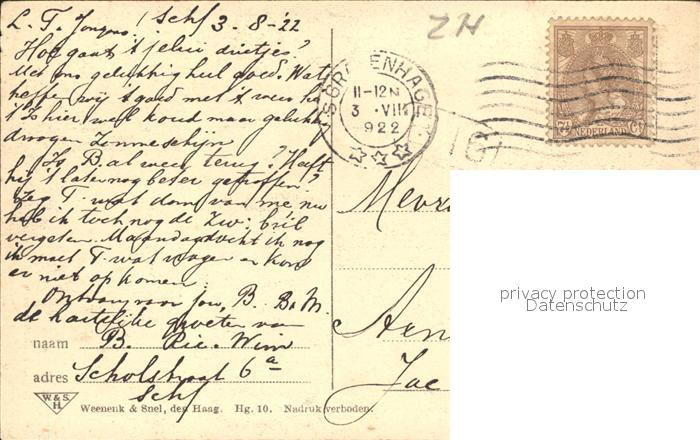 L. T. Jongens! Schf 3-8-'22
Hoe gaat 't jelui drietjes?
Met ons gelukkig heel goed. Wat
treffen wij 't goed met 't weer hè
't Is hier wel koud maar gelukkig
droog en zonneschijn
Is B. al weer terug? Heeft
hij 't later nog beter getroffen?
Zeg T. wat dom van me nu
heb ik toch nog de zw. bril
vergeten. Maandag dacht ik nog
ik moet T. wat vragen en kon
er niet op komen.
Ontvang voor jou, B. B. M.
de hartelijke groeten van
naam B. Rie. Wim
adres Scholstraat 6a
Schf
W.&S.
H.
Weenenk & Snel, den Haag. Hg. 10. Nadruk verboden.
ZH
'SGRAVENHAGE
11-12N
3 .VIII
1922
7½ NEDERLAND Ct
Mevr
Arn
Jac
privacy protection
Datenschutz